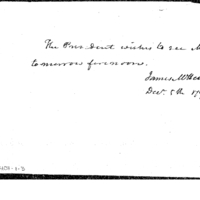 The President wishes to see M
tomorrow forenoon.
James McHe
Dec. 5th 179